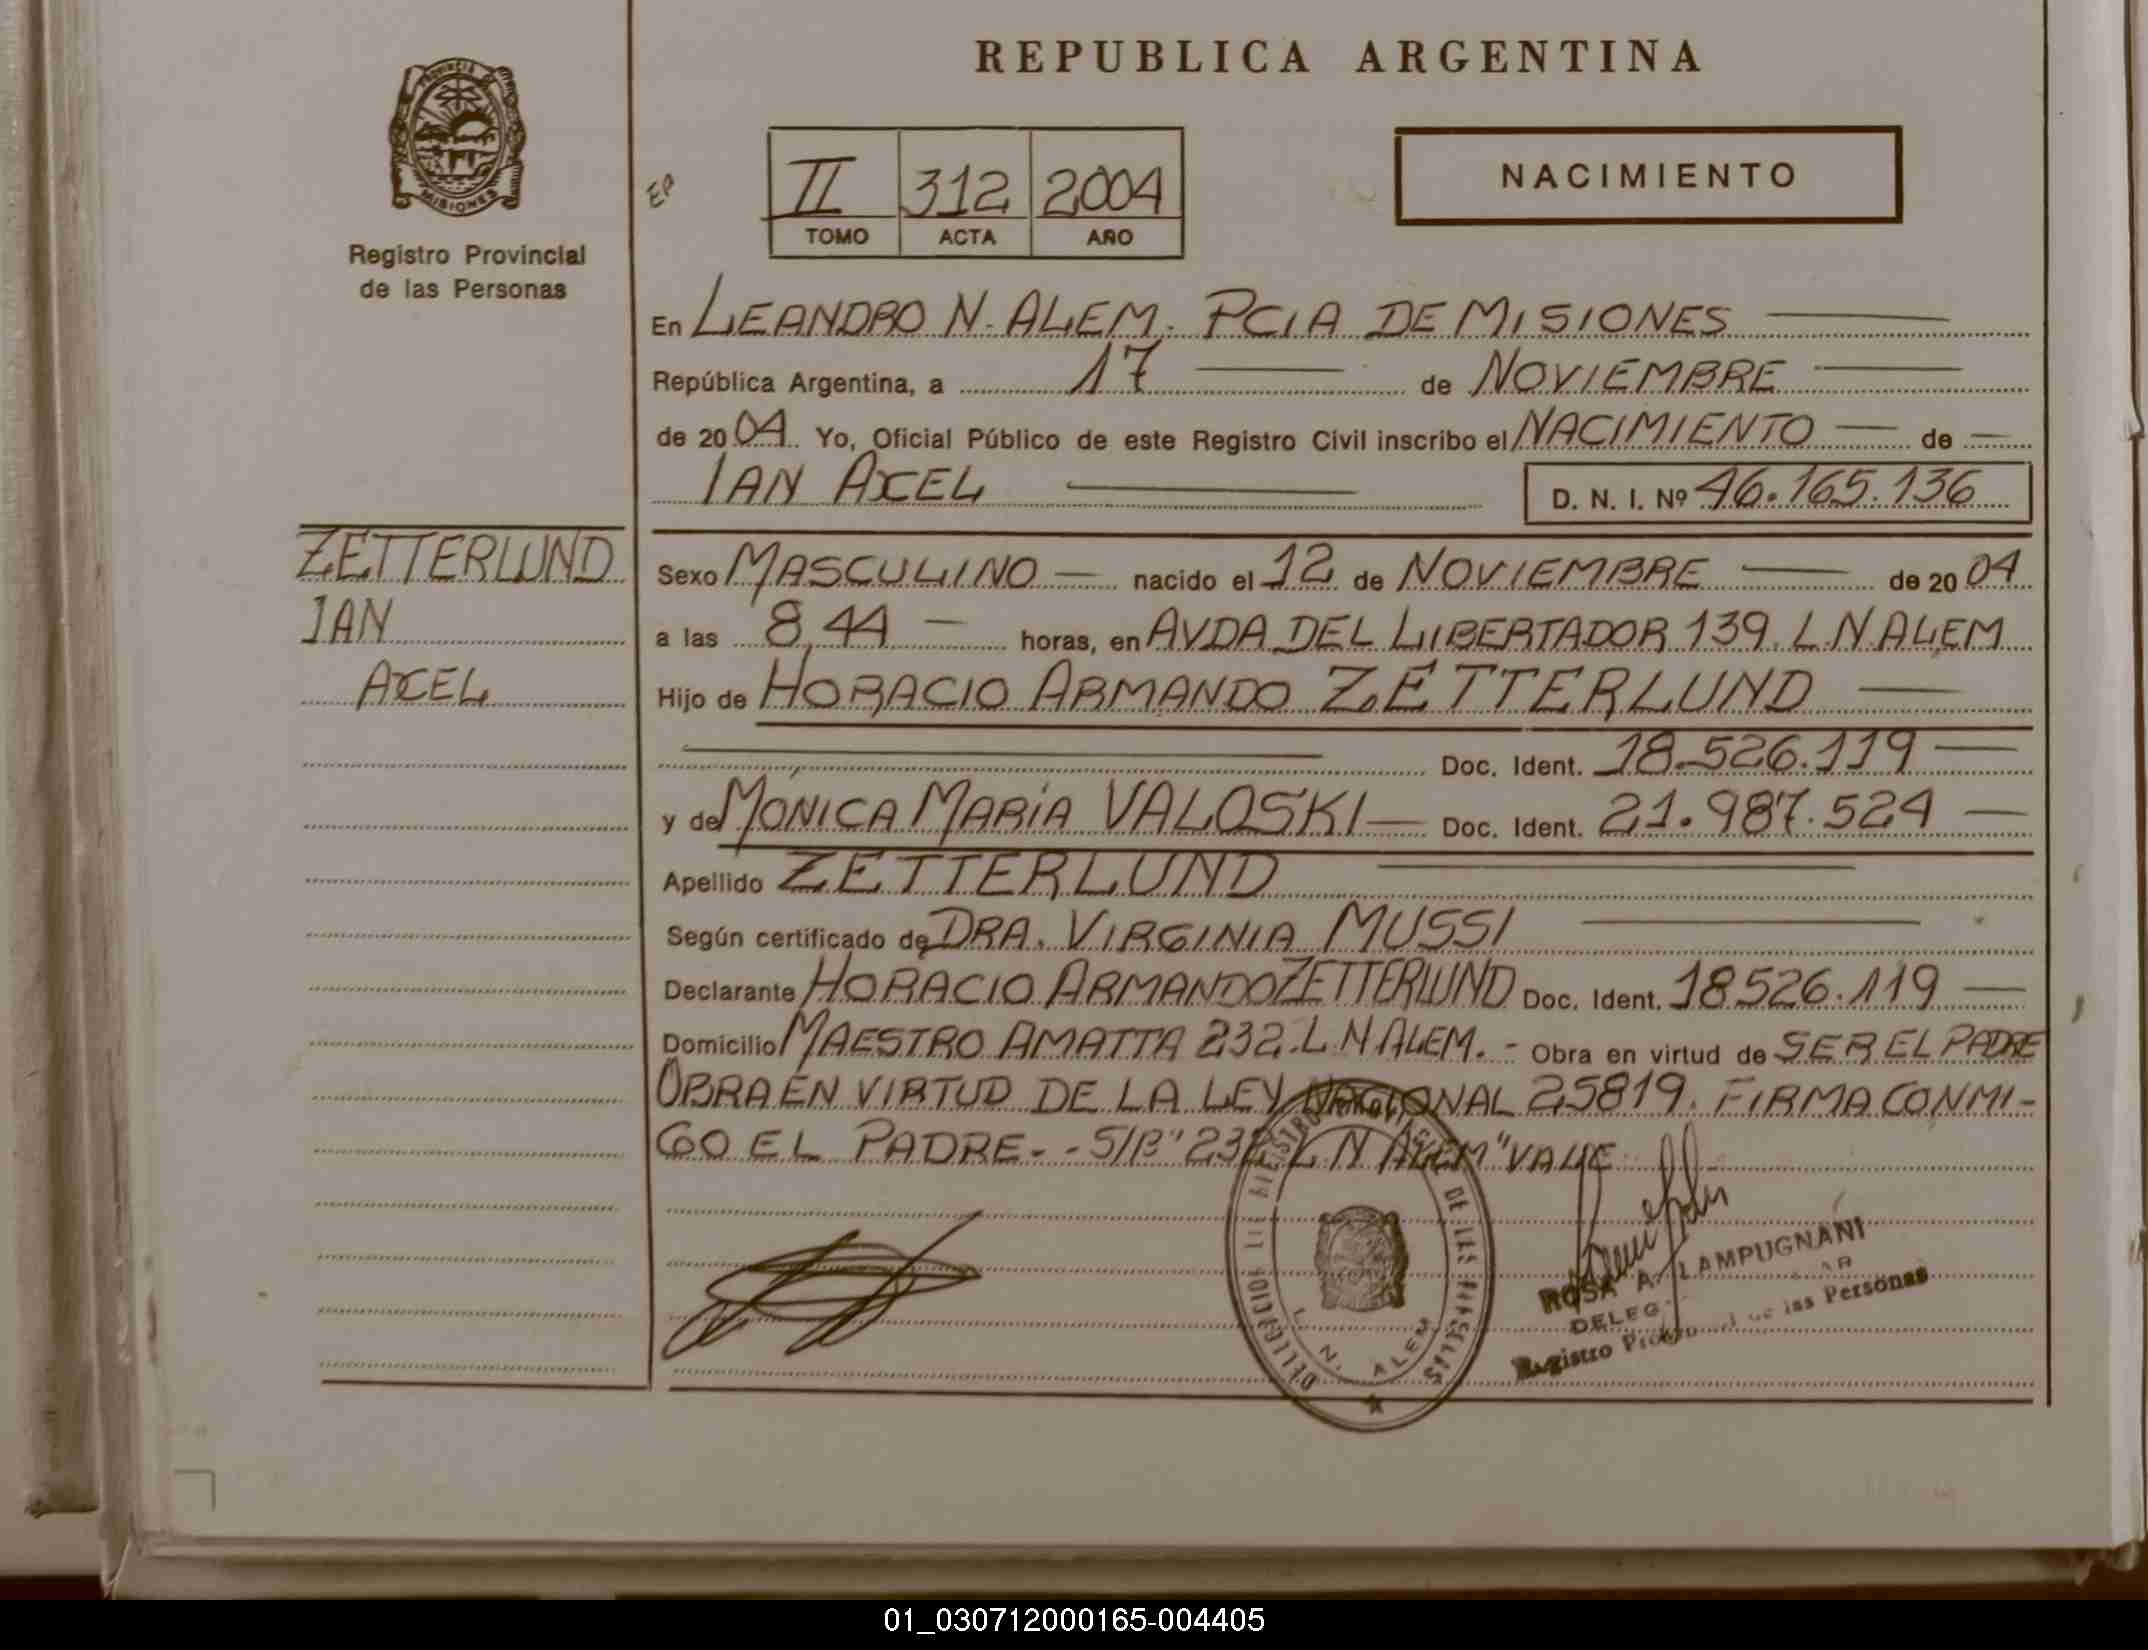 REPUBLICA ARGENTINA
PROVINCIA
MISIONES
Registro Provincial
de las Personas
EP
II 312 2004
TOMO ACTA AÑO
NACIMIENTO
En LEANDRO N. ALEM. PCIA DE MISIONES
República Argentina, a 17 de NOVIEMBRE
de 2004 Yo, Oficial Público de este Registro Civil inscribo el NACIMIENTO de
IAN AXEL D. N. I. Nº 46.165.136
ZETTERLUND
IAN
AXEL
Sexo MASCULINO nacido el 12 de NOVIEMBRE de 2004
a las 8,44 horas, en AVDA DEL LIBERTADOR 139. L.N.ALEM
Hijo de HORACIO ARMANDO ZETTERLUND
Doc. Ident. 18.526.119
y de MÓNICA MARÍA VALOSKI Doc. Ident. 21.987.524
Apellido ZETTERLUND
Según certificado de DRA. VIRGINIA MUSSI
Declarante HORACIO ARMANDO ZETTERLUND Doc. Ident. 18526.119
Domicilio MAESTRO AMATTA 232. L N ALEM. - Obra en virtud de SER EL PADRE
OBRA EN VIRTUD DE LA LEY NACIONAL 25819. FIRMA CONMI-
GO EL PADRE. - S/B "232 L N ALEM" VALE
DE LAS
L. N. ALEM
ROSA A. LAMPUGNANI
DELEG
Registro de las Personas
01_030712000165-004405